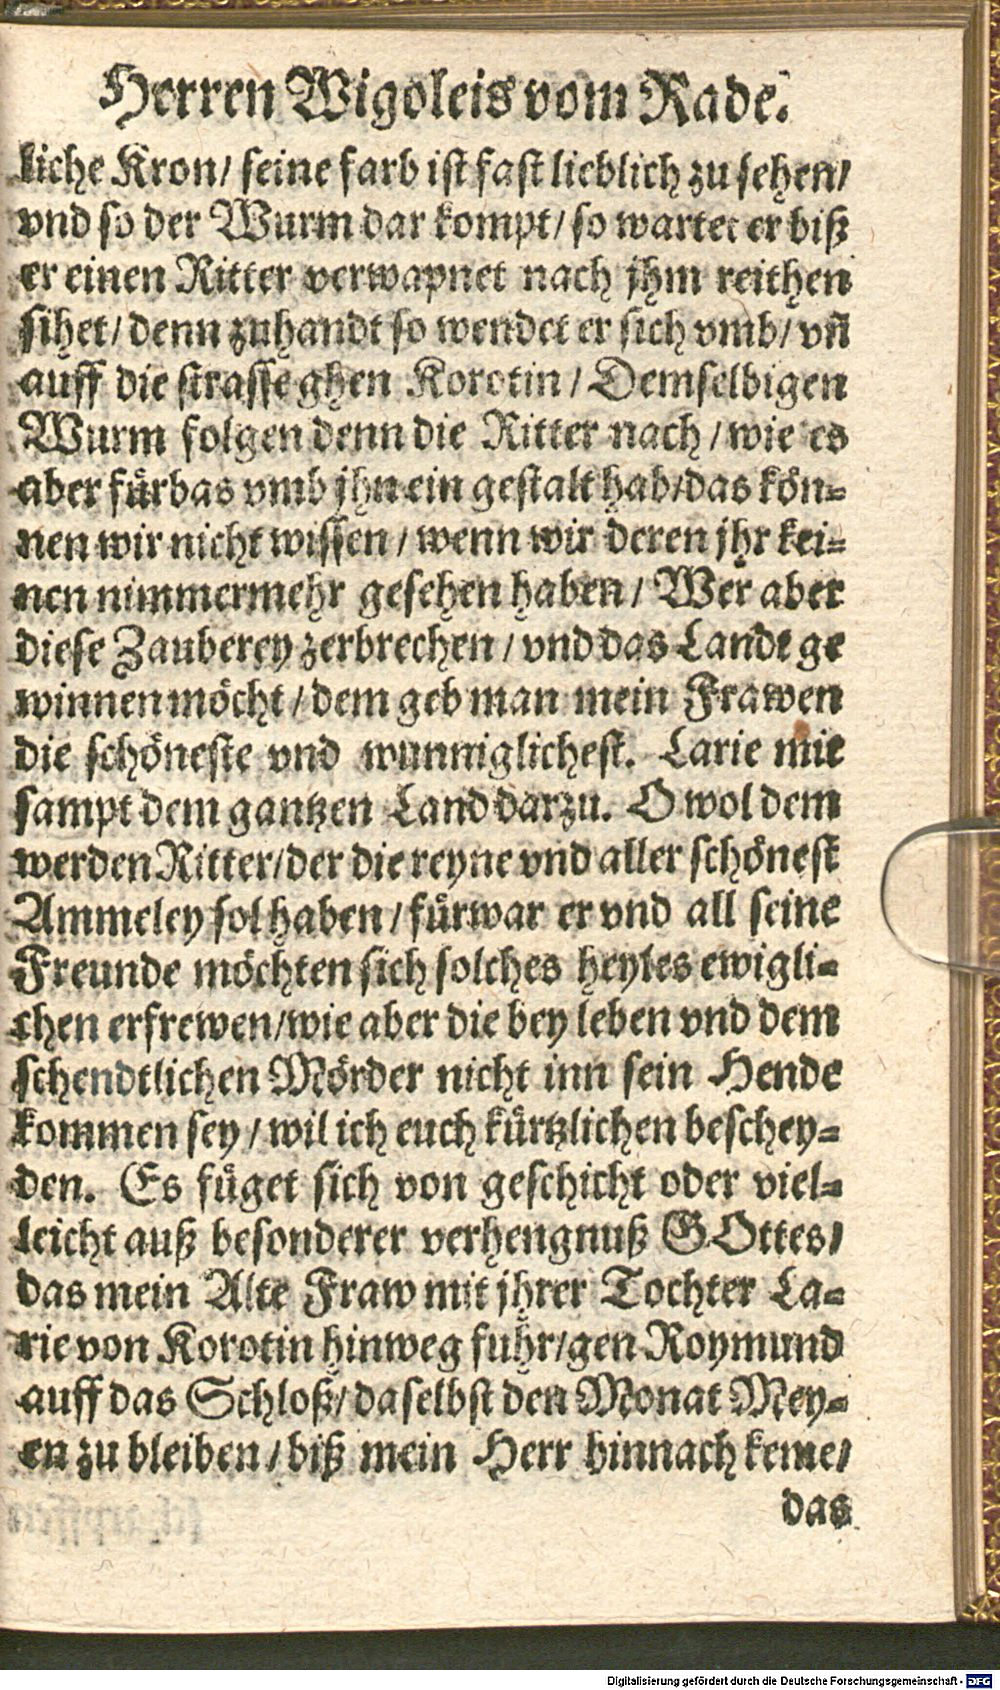 Herren Wigoleis vom Rade.
liche Kron/ seine farb ist fast lieblich zu sehen/
vnd so der Wurm dar kompt/ so wartet er biß
er einen Ritter verwapnet nach jhm reithen
sihet/ denn zuhandt so wendet er sich vmb/ vn̄
auff die strasse ghen Korotin/ Demselbigen
Wurm folgen denn die Ritter nach/ wie es
aber fuͤrbas vmb jhn ein gestalt hab/ das koͤn-
nen wir nicht wissen/ wenn wir deren jhr kei-
nen nimmermehr gesehen haben/ Wer aber
diese Zauberey zerbrechen/ vnd das Landt ge
winnen moͤcht/ dem geb man mein Frawen
die schoͤneste vnd wunniglichest. Larie mit
sampt dem gantzen Land darzu. O wol dem
werden Ritter/ der die reyne vnd aller schoͤnest
Ammeley sol haben/ fuͤrwar er vnd all seine
Freunde moͤchten sich solches heyles ewigli-
chen erfrewen/ wie aber die bey leben vnd dem
schendtlichen Moͤrder nicht inn sein Hende
kommen sey/ wil ich euch kuͤrtzlichen beschey-
den. Es fuͤget sich von geschicht oder viel-
leicht auß besonderer verhengnuß GOttes/
das mein Alte Fraw mit jhrer Tochter La-
rie von Korotin hinweg fuhr/ gen Roymund
auff das Schloß/ daselbst den Monat Mey-
en zu bleiben/ biß mein Herr hinnach keme/
das
Digitalisierung gefördert durch die Deutsche Forschungsgemeinschaft - DFG